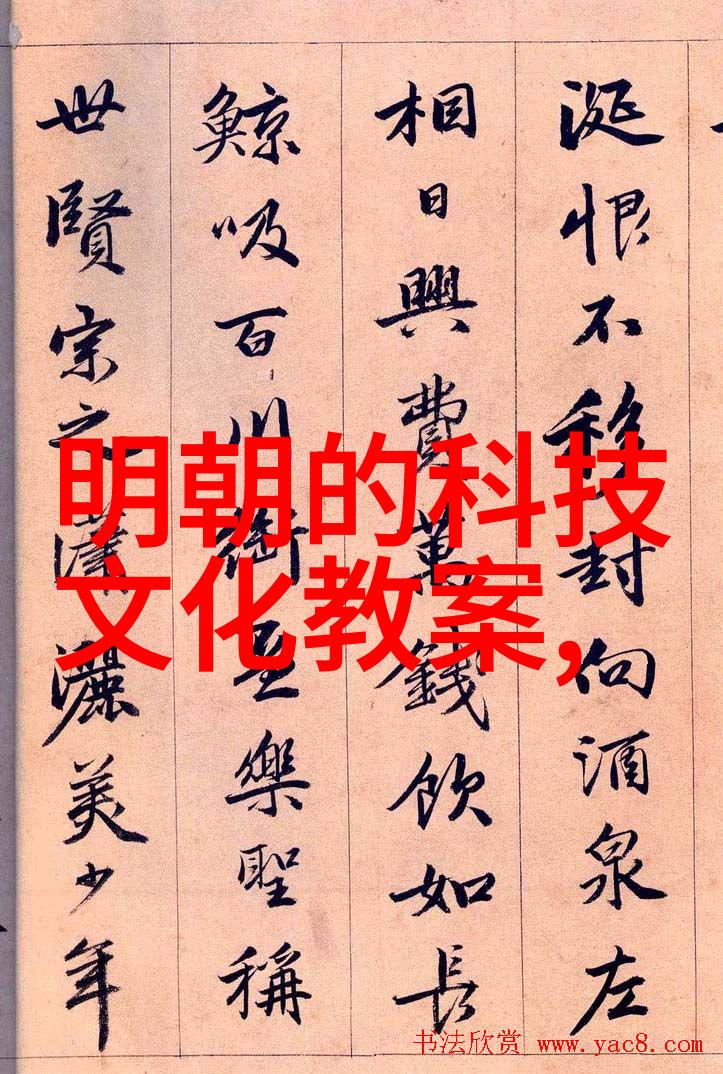 涎恨不移封向酒泉左
相日興費萬錢飲如長
鯨吸百川銜盃樂聖稱
世賢宗之瀟灑美少年
明朝的科技
文化教案,
书法欣赏 www.yac8.com